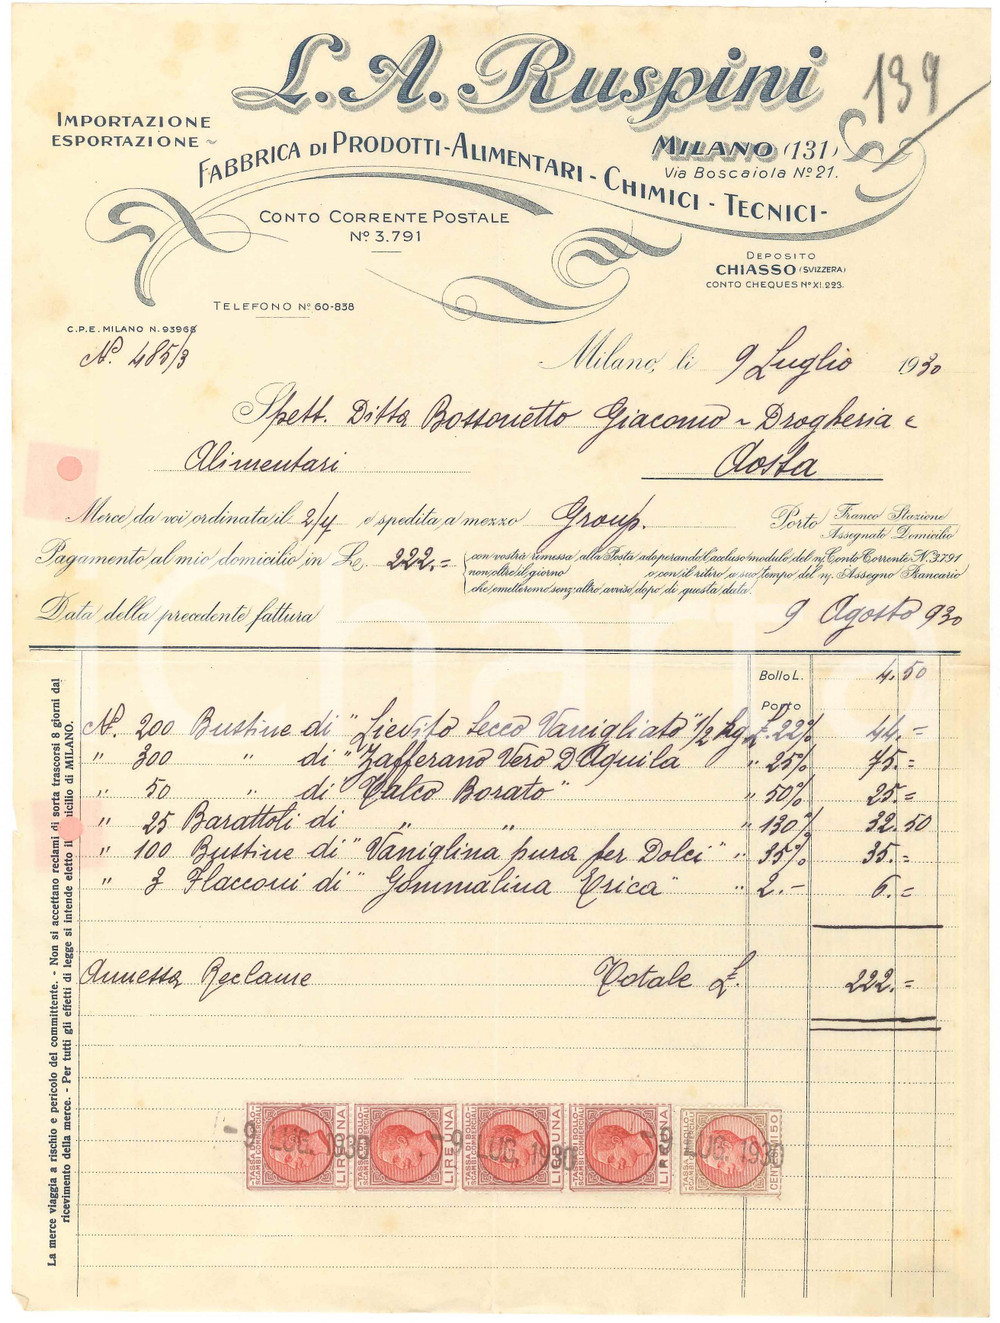 L. A. Ruspini
139
IMPORTAZIONE
ESPORTAZIONE ~
FABBRICA DI PRODOTTI - ALIMENTARI - CHIMICI - TECNICI -
MILANO (131)
Via Boscaiola Nº 21.
CONTO CORRENTE POSTALE
Nº 3.791
DEPOSITO
CHIASSO (SVIZZERA)
CONTO CHEQUES Nº XI.223.
TELEFONO Nº 60-838
C.P.E. MILANO N. 93968
Nº 485/3
Milano, li 9 Luglio 1930
Spett. Ditta Bossonetto Giacomo ~ Drogheria e
Alimentari Aosta
Merce da voi ordinata il 2/4 e spedita a mezzo Group. Porto Franco Stazione
Assegnato Domicilio
Pagamento al mio domicilio in Lr. 222.=
con vostra rimessa alla Posta adoperando l'accluso modulo del n/ Conto Corrente N. 3791
non oltre il giorno o con il ritiro a suo tempo del n/ Assegno Bancario
che emetteremo senz'altro avviso dopo di questa data.
Data della precedente fattura 9 Agosto 930
Bollo L. 4.50
Porto
Nº 200 Bustine di "Lievito Secco Vanigliato" 1/2 Kg £ 22% 44.=
" 300 " di "Zafferano Vero D'Aquila " 25% 75.=
" 50 " di "Talco Borato" " 50% 25.=
" 25 Barattoli di " " " 130% 32.50
" 100 Bustine di "Vaniglina pura per Dolci" " 35% 35.=
" 3 Flacconi di "Gommalina Erica" " 2.- 6.=
Annessa Reclame Totale £. 222.=
La merce viaggia a rischio e pericolo del committente. - Non si accettano reclami di sorta trascorsi 8 giorni dal
ricevimento della merce. - Per tutti gli effetti di legge si intende eletto il micilio di MILANO.
TASSA DI BOLLO SCAMBI COMMERCIALI LIRE UNA
TASSA DI BOLLO SCAMBI COMMERCIALI LIRE UNA
TASSA DI BOLLO SCAMBI COMMERCIALI LIRE UNA
TASSA DI BOLLO SCAMBI COMMERCIALI LIRE UNA
TASSA DI BOLLO SCAMBI COMMERCIALI CENTESIMI 50
- 9 LUG. 1930 - 9 LUG. 1930 - 9 LUG. 1930